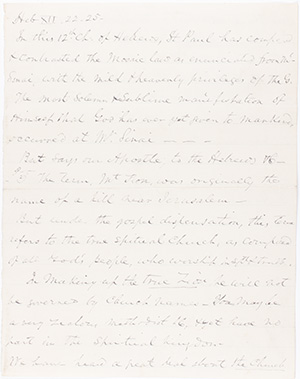 Heb XII. 22-25-
In this 12th Ch. of Hebrews, St. Paul has compared
& contrasted the Mosaic law as enunciated from Mt.
Sinai, with the mild & heavenly privileges of the G.
The most solemn & sublime manifestation of
himself that God has ever yet given to mankind,
occurred at Mt. Sinai - - -
But says our Apostle to the Hebrews
1st The term, Mt Zion, was originally the
name of a hill near Jerusalem -
But under the gospel dispensation, this term
refers to the true spiritual Church, as composed
of all God's people, who worship in truth.
In Making up the true Zion he will not
be governed by Church names - You may be
a very zealous Methodist &c, & yet have no
part in the Spiritual kingdom.
We have heard a great deal about the Church